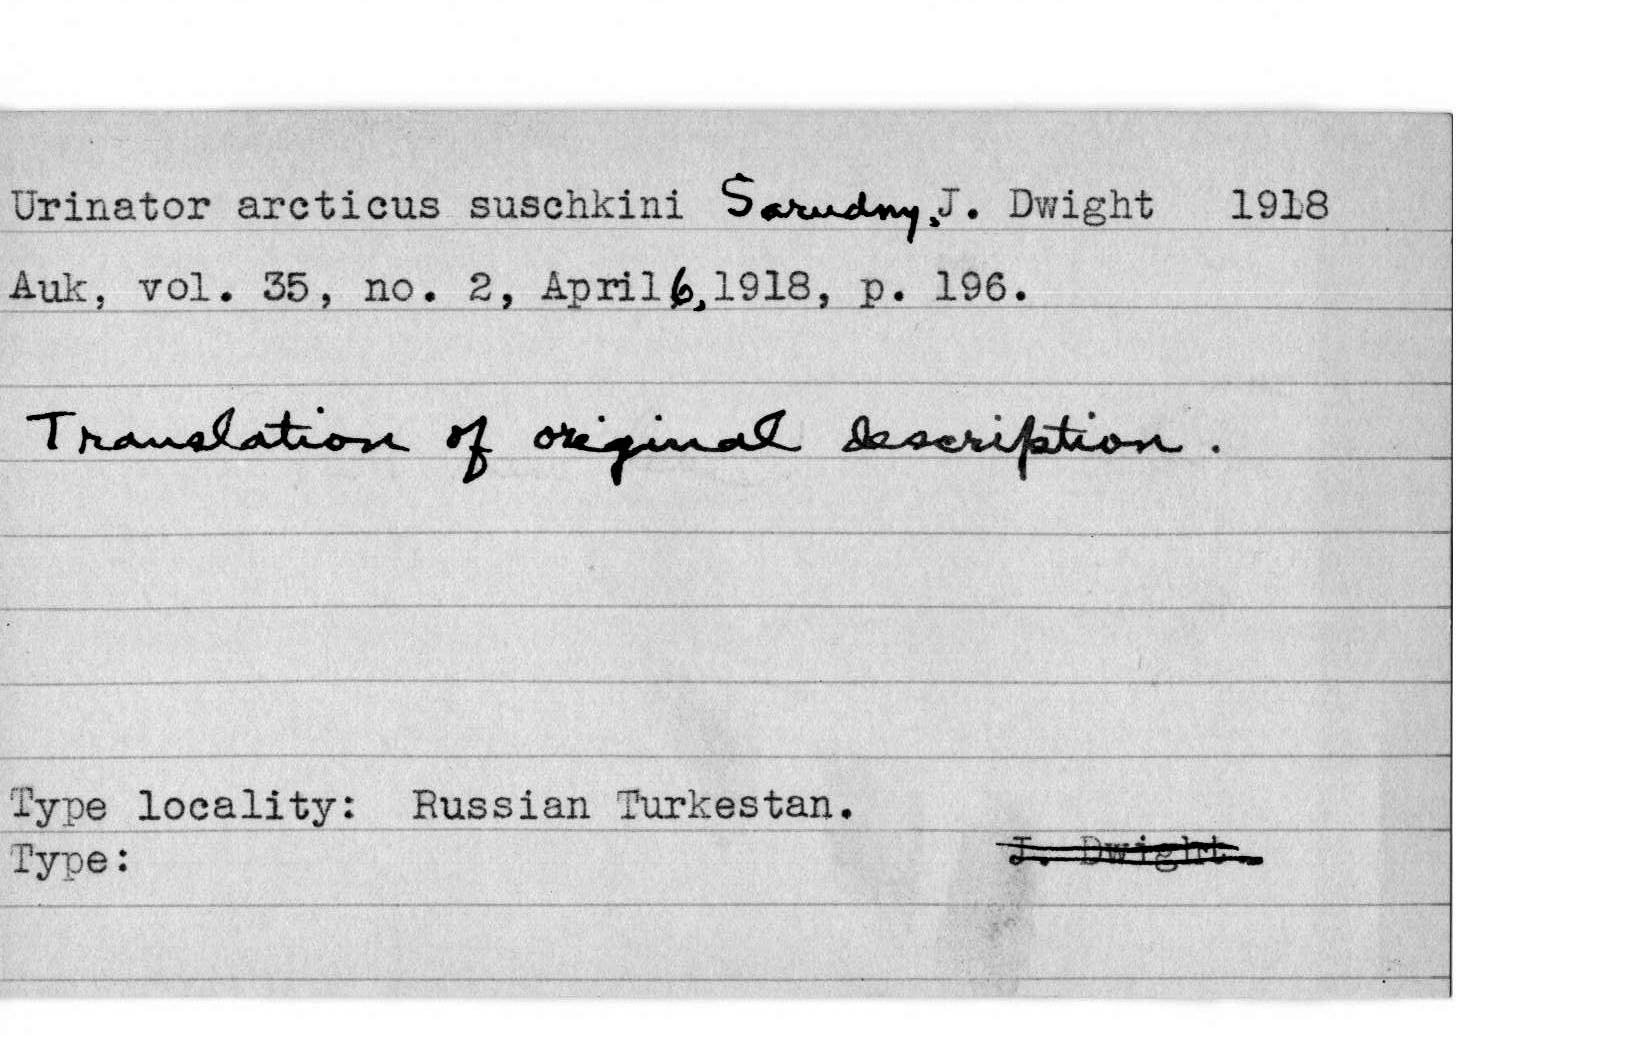 Urinator arcticus suschkini Sarudny, J. Dwight 1918
Auk, vol. 35, no. 2, April 6, 1918, p. 196.
Translation of original description.
Type locality: Russian Turkestan.
Type: J. Dwight